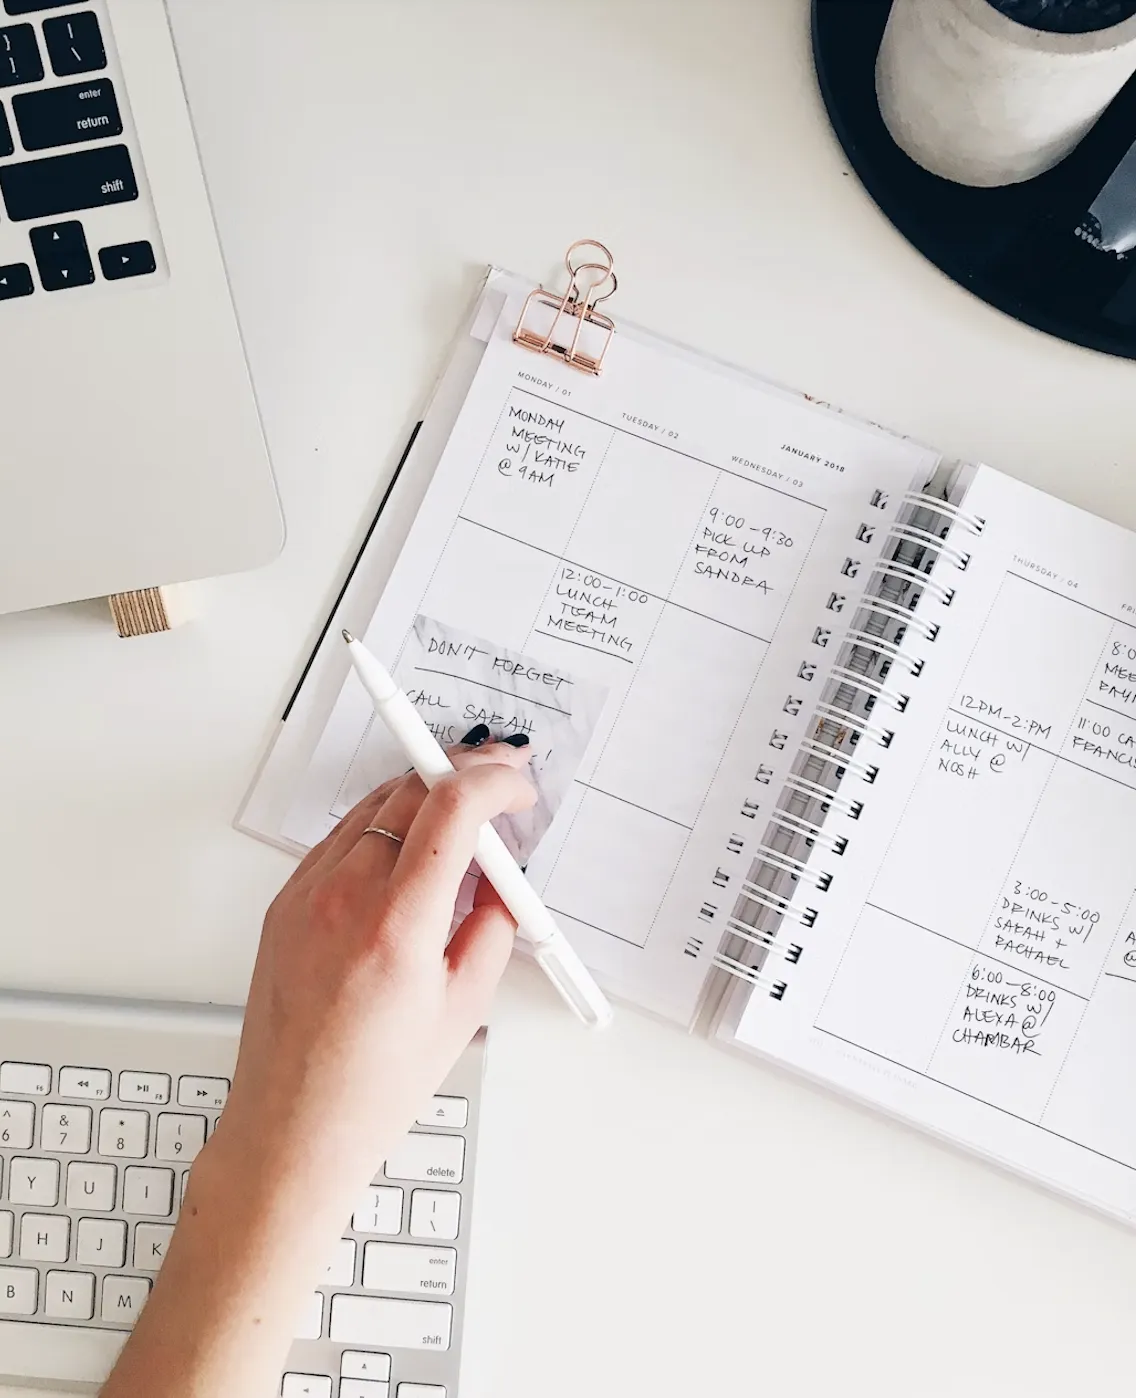 enter
return
shift
MONDAY / 01
MONDAY
MEETING
W/ KATIE
@ 9AM
TUESDAY / 02
12:00-1:00
LUNCH
TEAM
MEETING
JANUARY 2018
WEDNESDAY / 03
9:00-9:30
PICK UP
FROM
SANDRA
DON'T FORGET
CALL SARAH
!
THURSDAY / 04
12PM-2:PM
LUNCH W/
ALLY @
NOSH
8:0
MEE
11:00 CA
FRANCIS
3:00-5:00
DRINKS W/
SARAH +
RACHAEL
6:00-8:00
DRINKS W/
ALEXA @
CHAMBAR
A
@
F6 F7 F8 F9
^ & * (
6 7 8 9
delete
Y U I
} |
] \
H J K
enter
return
B N M
shift